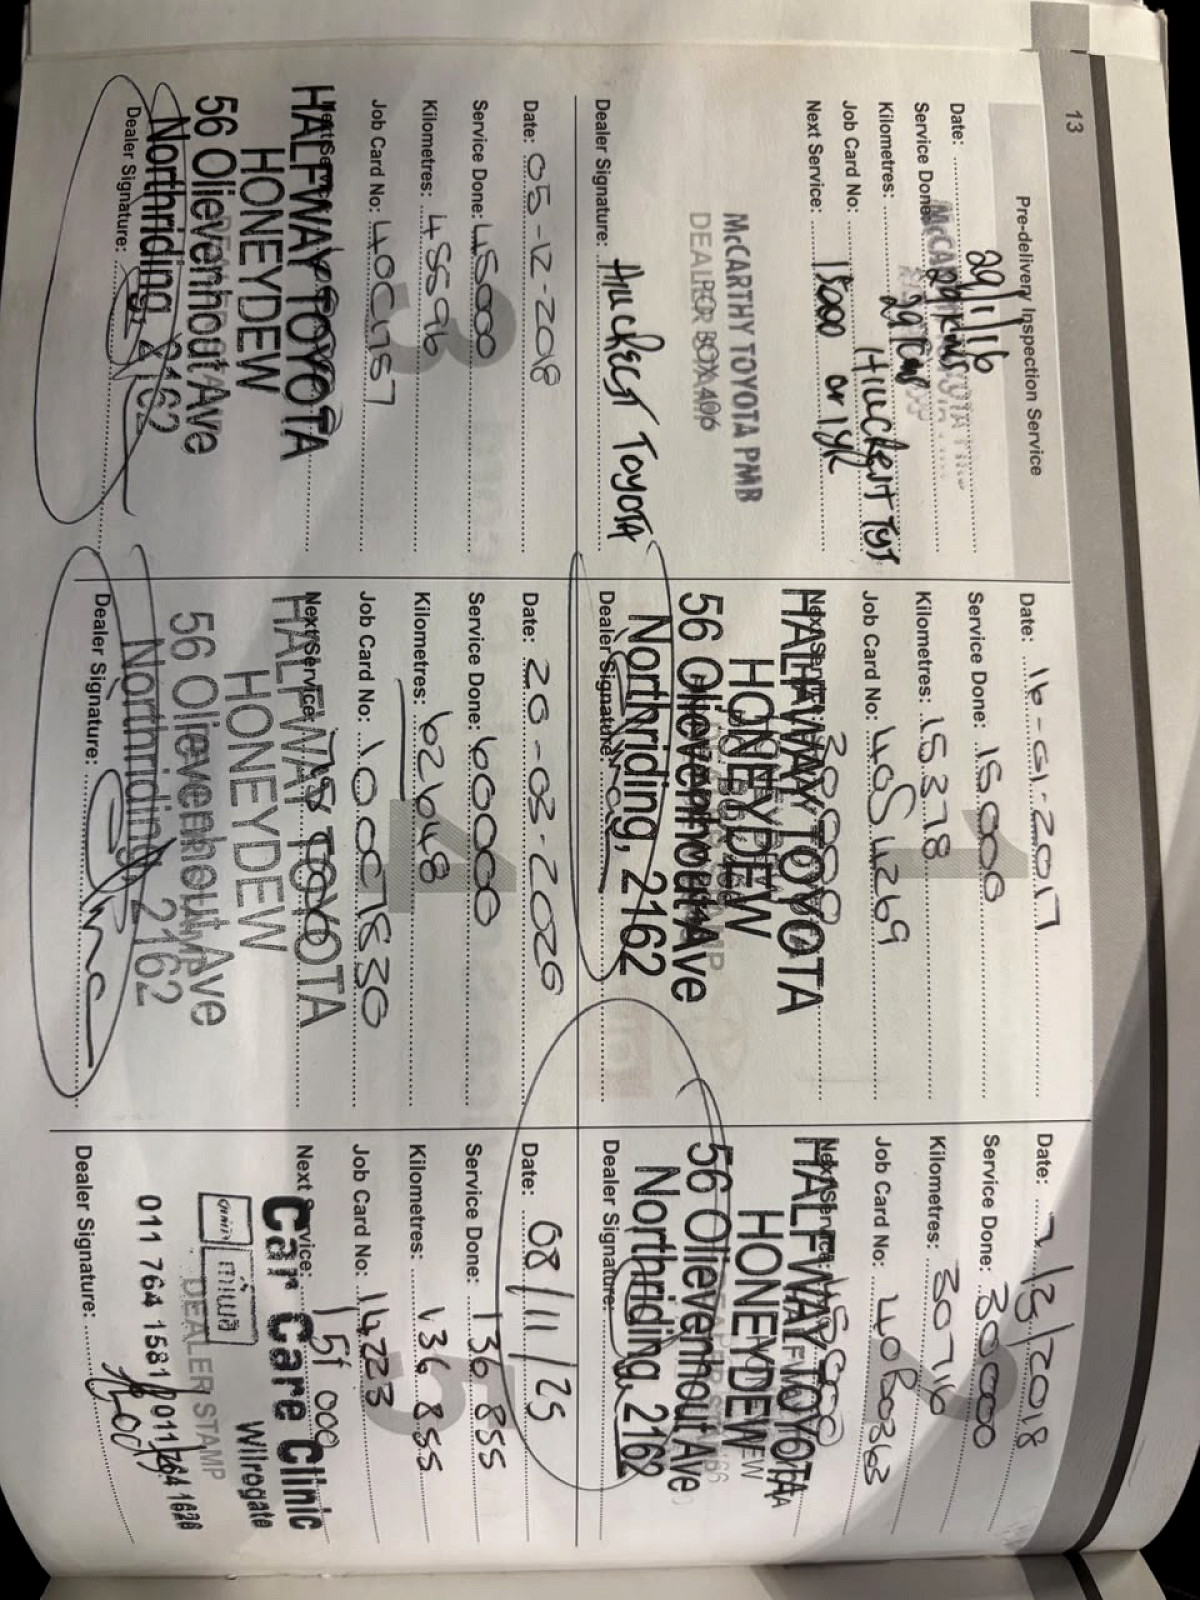 13
Pre-delivery Inspection Service
Date: 29/1/16
Service Done:
Kilometres:
Job Card No: Hillcrest Tyt
Next Service: 15000 or 1yr
McCARTHY TOYOTA PMB
Dealer Signature: Hillcrest Toyota
1
Date: 16-01-2017
Service Done: 15000
Kilometres: 15378
Job Card No: 40S4269
Next Service: 30000
HALFWAY TOYOTA
HONEYDEW
56 Olievenhout Ave
Northriding, 2162
Dealer Signature:
2
Date: /2018
Service Done: 30000
Kilometres: 30716
Job Card No: 40B0363
Next Service: 45000
HALFWAY TOYOTA
HONEYDEW
56 Olievenhout Ave
Northriding, 2162
Dealer Signature:
3
Date: 05-12-2018
Service Done: 45000
Kilometres: 45596
Job Card No: 40C1157
Next Service:
HALFWAY TOYOTA
HONEYDEW
56 Olievenhout Ave
Northriding, 2162
Dealer Signature:
4
Date: 20-03-2020
Service Done: 60000
Kilometres: 62648
Job Card No: 100C7830
Next Service: 75000
HALFWAY TOYOTA
HONEYDEW
56 Olievenhout Ave
Northriding, 2162
Dealer Signature:
5
Date: 08/11/25
Service Done: 136 855
Kilometres: 136 855
Job Card No: 14223
Next Service: 151 000
Car Care Clinic
Wilrogate
DEALER STAMP
011 764 1581 / 011 764 1626
Dealer Signature: